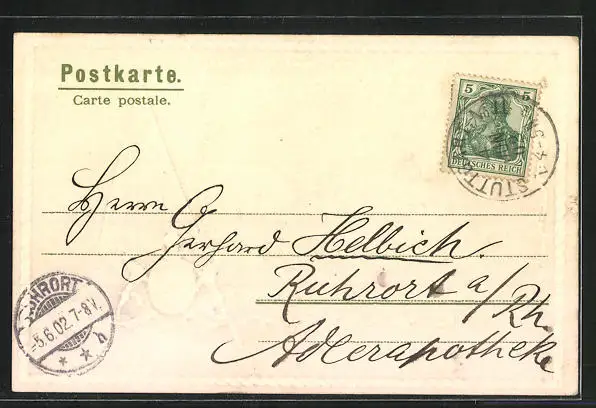 Postkarte.
Carte postale.
5 5
DEUTSCHES REICH
STUTT
Herrn
Gerhard Helbich.
Ruhrort a/Rh.
Adlerapotheke
RUHRORT
-5.6.02.7-8V.
* * d